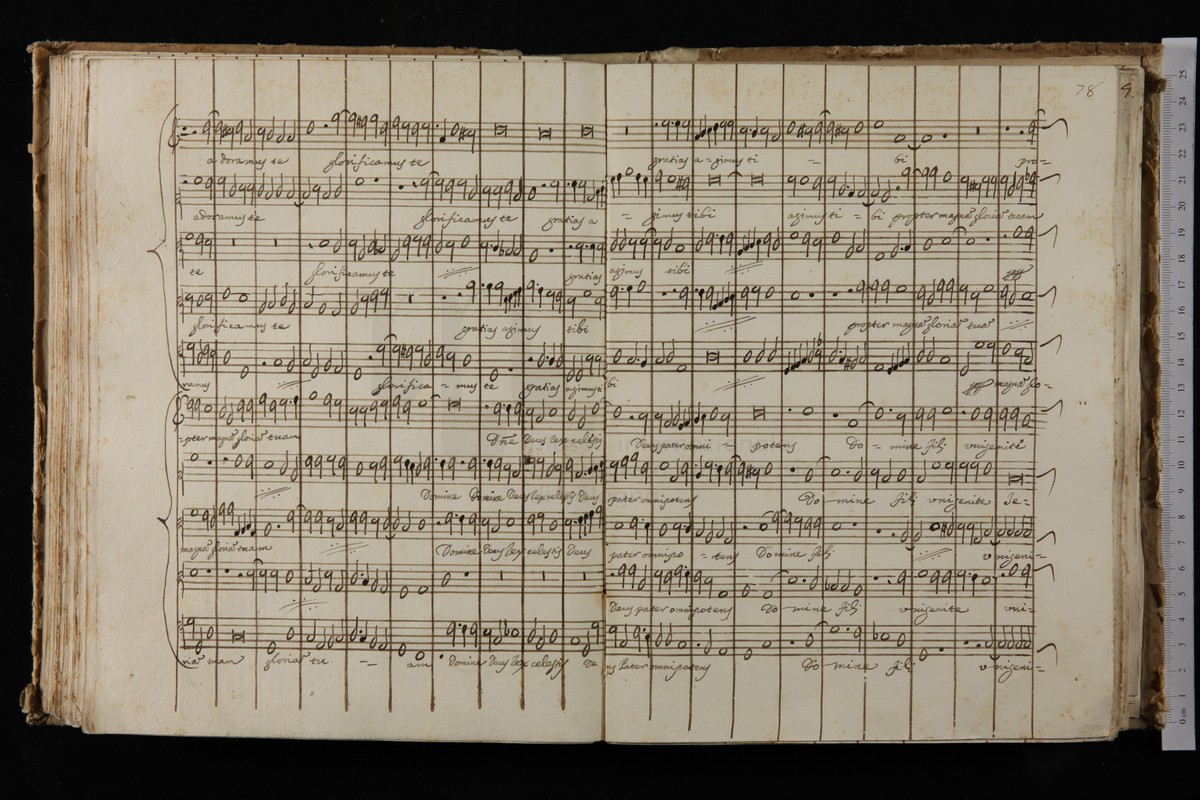 78 9.
adoramus te glorificamus te gratias a = gimus ti - bi pro=
adoramus te glorificamus te gratias a = gimus tibi agimus ti = bi propter magnā gloriā tuam
te glorificamus te gratias agimus tibi
glorificamus te gratias agimus tibi propter magnā gloriā tuā
ramus glorifica = mus te gratias agimus ti bi magnā glo=
=pter magnā gloriā tuam Dñe Deus Rex celestis Deus pater omni = potens Do = mine fili unigenite
Domine Domine Deus Rex celestis Deus pater omnipotens Do mine fili unigenite Je=
magnā gloriā tuam Domine Deus Rex celestis Deus pater omnipo = tens Domine fili unigeni=
Deus pater omnipotens Do mine fili unigenite uni=
riā tuam gloriā tu - am Domine Deus Rex celestis De us Pater omnipotens Do mine fili unigeni=
0 cm 1 2 3 4 5 6 7 8 9 10 11 12 13 14 15 16 17 18 19 20 21 22 23 24 25